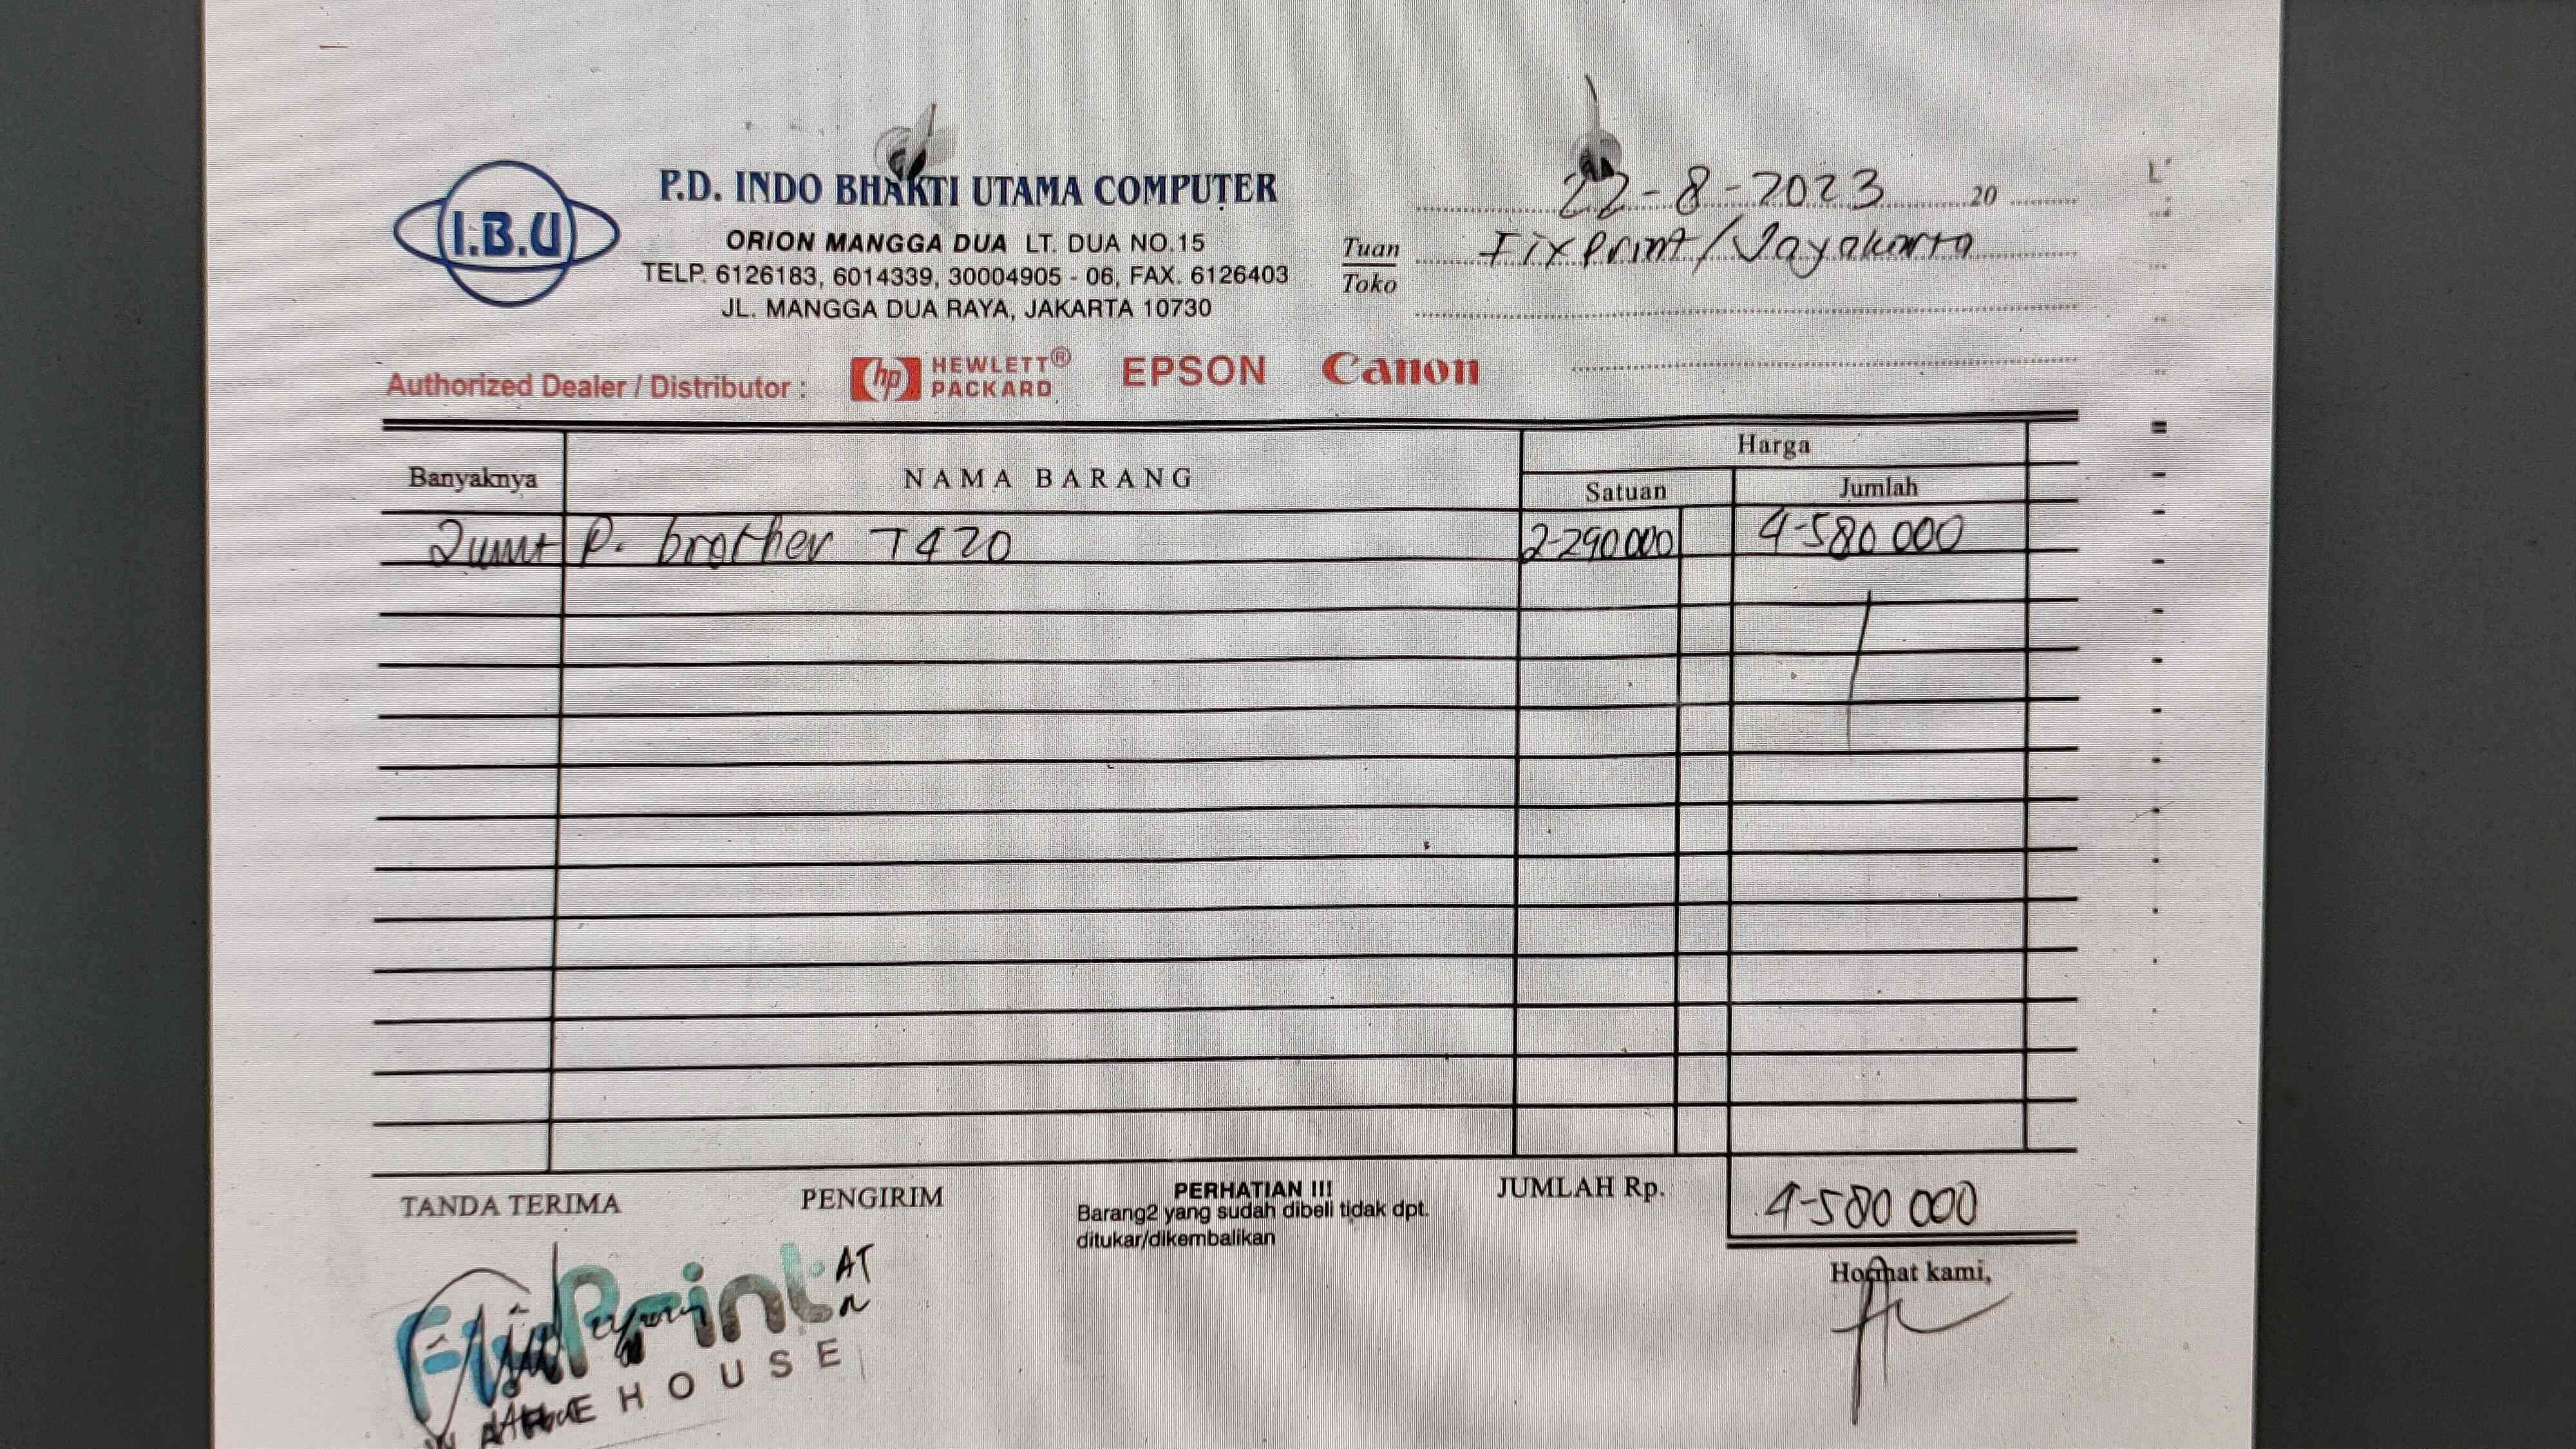 I.B.U
P.D. INDO BHAKTI UTAMA COMPUTER
ORION MANGGA DUA LT. DUA NO.15
TELP. 6126183, 6014339, 30004905 - 06, FAX. 6126403
JL. MANGGA DUA RAYA, JAKARTA 10730
22-8-2023 20
Tuan Fixprint/Jayakarta
Toko
Authorized Dealer / Distributor : hp HEWLETT® PACKARD EPSON Canon
Banyaknya NAMA BARANG Harga
Satuan Jumlah
2 unit P. brother T420 2-290 000 4-580 000
TANDA TERIMA PENGIRIM PERHATIAN !!! JUMLAH Rp. 4-580 000
Barang2 yang sudah dibeli tidak dpt.
ditukar/dikembalikan
Hormat kami,
Print AT
HOUSE